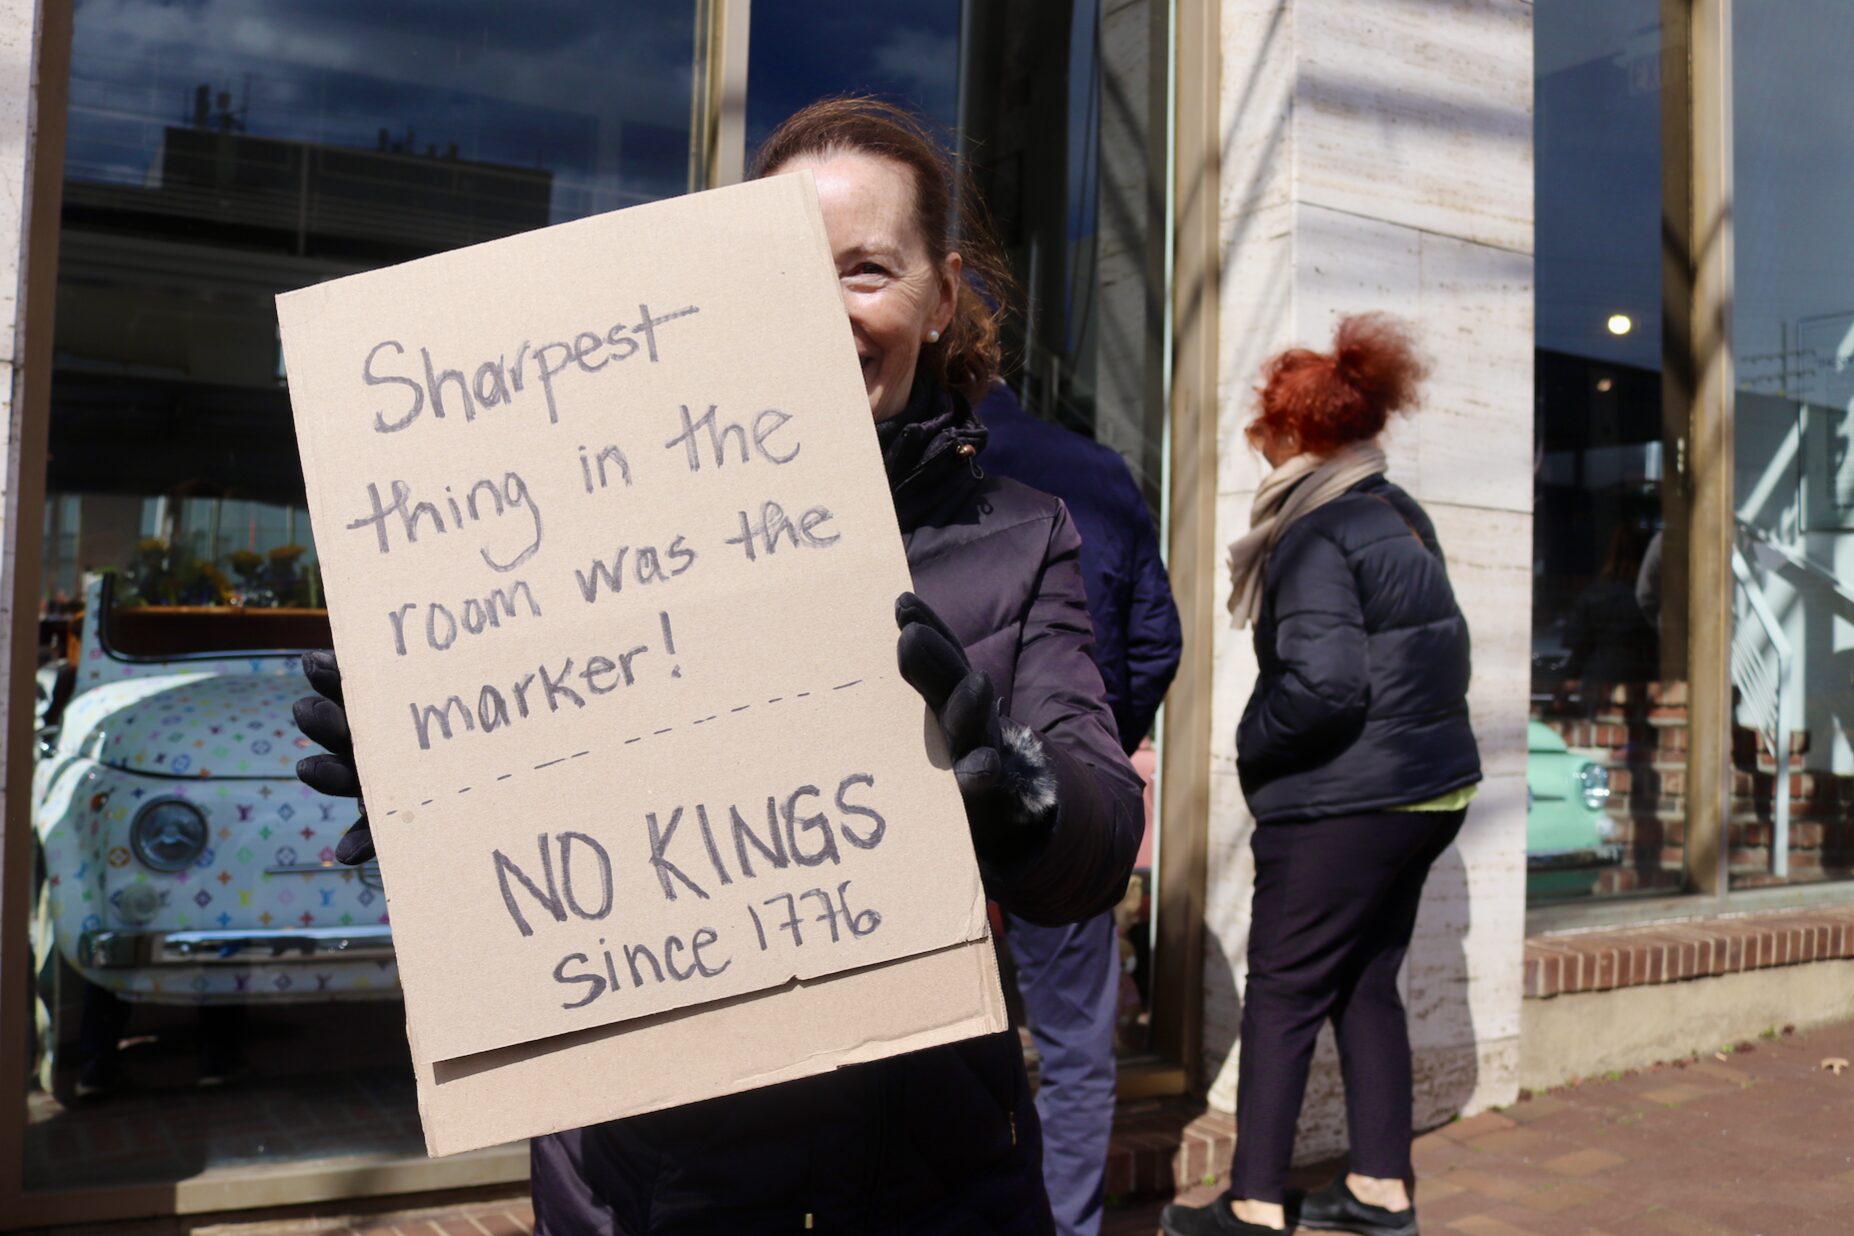 Sharpest
thing in the
room was the
marker!
NO KINGS
since 1776